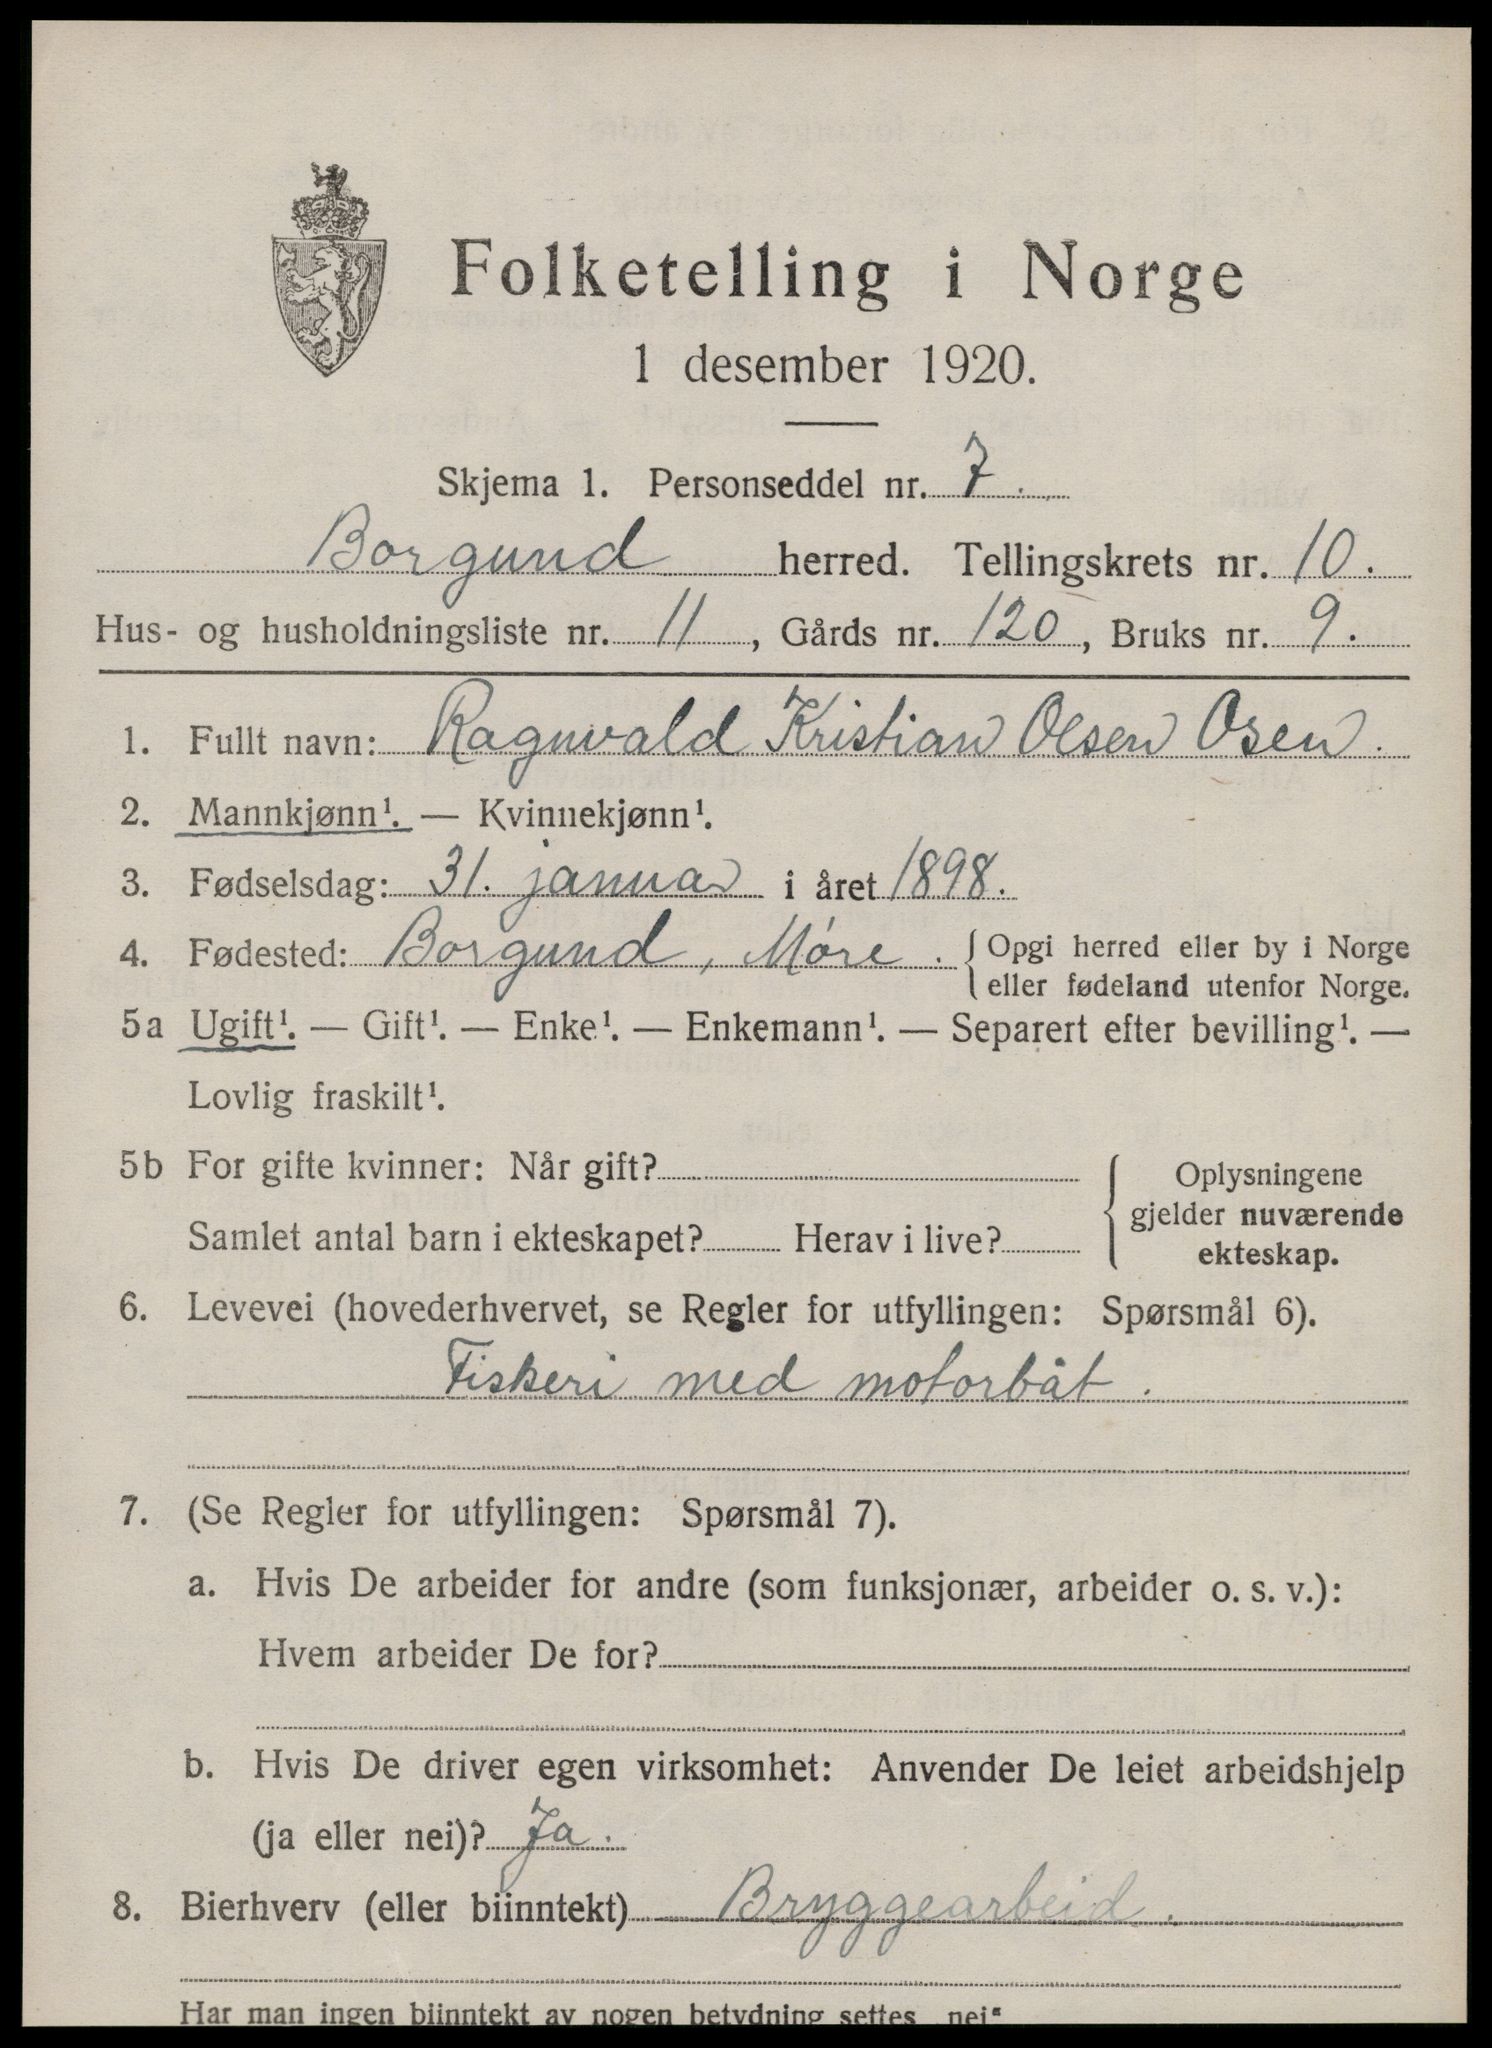 Folketelling i Norge
1 desember 1920.
Skjema 1. Personseddel nr. 7.
Borgund herred. Tellingskrets nr. 10.
Hus- og husholdningsliste nr. 11, Gårds nr. 120, Bruks nr. 9.
1. Fullt navn: Ragnvald Kristian Olsen Osen.
2. Mannkjønn¹. — Kvinnekjønn¹.
3. Fødselsdag: 31. januar i året 1898.
4. Fødested: Borgund, Møre. { Opgi herred eller by i Norge
eller fødeland utenfor Norge.
5a Ugift¹. — Gift¹. — Enke¹. — Enkemann¹. — Separert efter bevilling¹. —
Lovlig fraskilt¹.
5b For gifte kvinner: Når gift?
Samlet antal barn i ekteskapet? Herav i live?
{ Oplysningene
gjelder nuværende
ekteskap.
6. Levevei (hovederhvervet, se Regler for utfyllingen: Spørsmål 6).
Fiskeri med motorbåt.
7. (Se Regler for utfyllingen: Spørsmål 7).
a. Hvis De arbeider for andre (som funksjonær, arbeider o. s. v.):
Hvem arbeider De for?
b. Hvis De driver egen virksomhet: Anvender De leiet arbeidshjelp
(ja eller nei)? Ja.
8. Bierhverv (eller biinntekt) Bryggearbeid.
Har man ingen biinntekt av nogen betydning settes „nei“